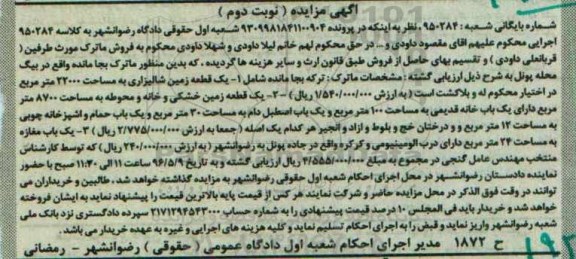 آگهی مزایده ( نوبت دوم )
شماره بایگانی شعبه : ۹۵۰۲۸۴ نظر به اینکه در پرونده ۹۳۰۹۹۸۱۸۴۱۱۰۰۹۰۳ شعبه اول حقوقی دادگاه رضوانشهر به کلاسه ۹۵۰۲۸۴
اجرایی محکوم علیهم آقای مقصود داودی و... در حق محکوم لهم خانم لیلا داودی و شهلا داودی محکوم به فروش ماترک مورث طرفین (
قربانعلی داودی ) و تقسیم بهای حاصل از فروش طبق قانون ارث و سایر هزینه ها گردیده ، که بدین منظور ماترک بجا مانده واقع در بیگ
محله پونل به شرح ذیل ارزیابی گشته : مشخصات ماترک : ترکه بجا مانده شامل ۱- یک قطعه زمین شالیزاری به مساحت ۲۲۰۰۰ متر مربع
در اختیار محکوم له و بلاکشت است ( به ارزش ۱/۵۴۰/۰۰۰/۰۰۰ ریال ) -۲- یک قطعه زمین خشکی و خانه و محوطه به مساحت ۸۷۰۰ متر
مربع دارای یک باب خانه قدیمی به مساحت ۱۰۰ متر مربع و یک باب اصطبل دام به مساحت ۳۰ متر مربع و یک باب حمام و آشپزخانه چوبی
به مساحت ۱۲ متر مربع و و درختان خج و بلوط و ازاد و انجیر هر کدام یک اصله ( جمعا به ارزش ۲/۷۷۵/۰۰۰/۰۰۰ ریال ) ۳- یک باب مغازه
به مساحت ۲۴ متر مربع دارای درب آلومینیومی و کرکره واقع در جاده پونل به رضوانشهر ( به ارزش ۲۴۰/۰۰۰/۰۰۰ ریال) که توسط کارشناس
منتخب مهندس عامل گنجی در مجموع به مبلغ ۴/۵۵۵/۰۰۰/۰۰۰ ریال ارزیابی گشته و به تاریخ ۹۶/۵/۹ ساعت ۱۱ الی ۱۱:۳۰ صبح با حضور
نماینده دادستان رضوانشهر در محل اجرای احکام شعبه اول حقوقی رضوانشهر به مزایده گذاشته خواهد شد ، طالبین و خریداران می
توانند در وقت فوق الذکر در محل مزایده حاضر و شرکت نمایند هر کس از قیمت پایه بالاترین قیمت را پیشنهاد نماید به ایشان فروخته
خواهد شد و خریدار باید فی المجلس ۱۰ درصد قیمت پیشنهادی را به شماره حساب ۲۱۷۱۲۹۴۵۴۳۰۰۰ سپرده دادگستری نزد بانک ملی
شعبه رضوانشهر واریز نماید و قبض را به اجرای احکام تسلیم نماید و کلیه هزینه های اجرایی و غیره به عهده خریدار می باشد.
ح ۱۸۷۲ مدیر اجرای احکام شعبه اول دادگاه عمومی ( حقوقی ) رضوانشهر - رمضانی